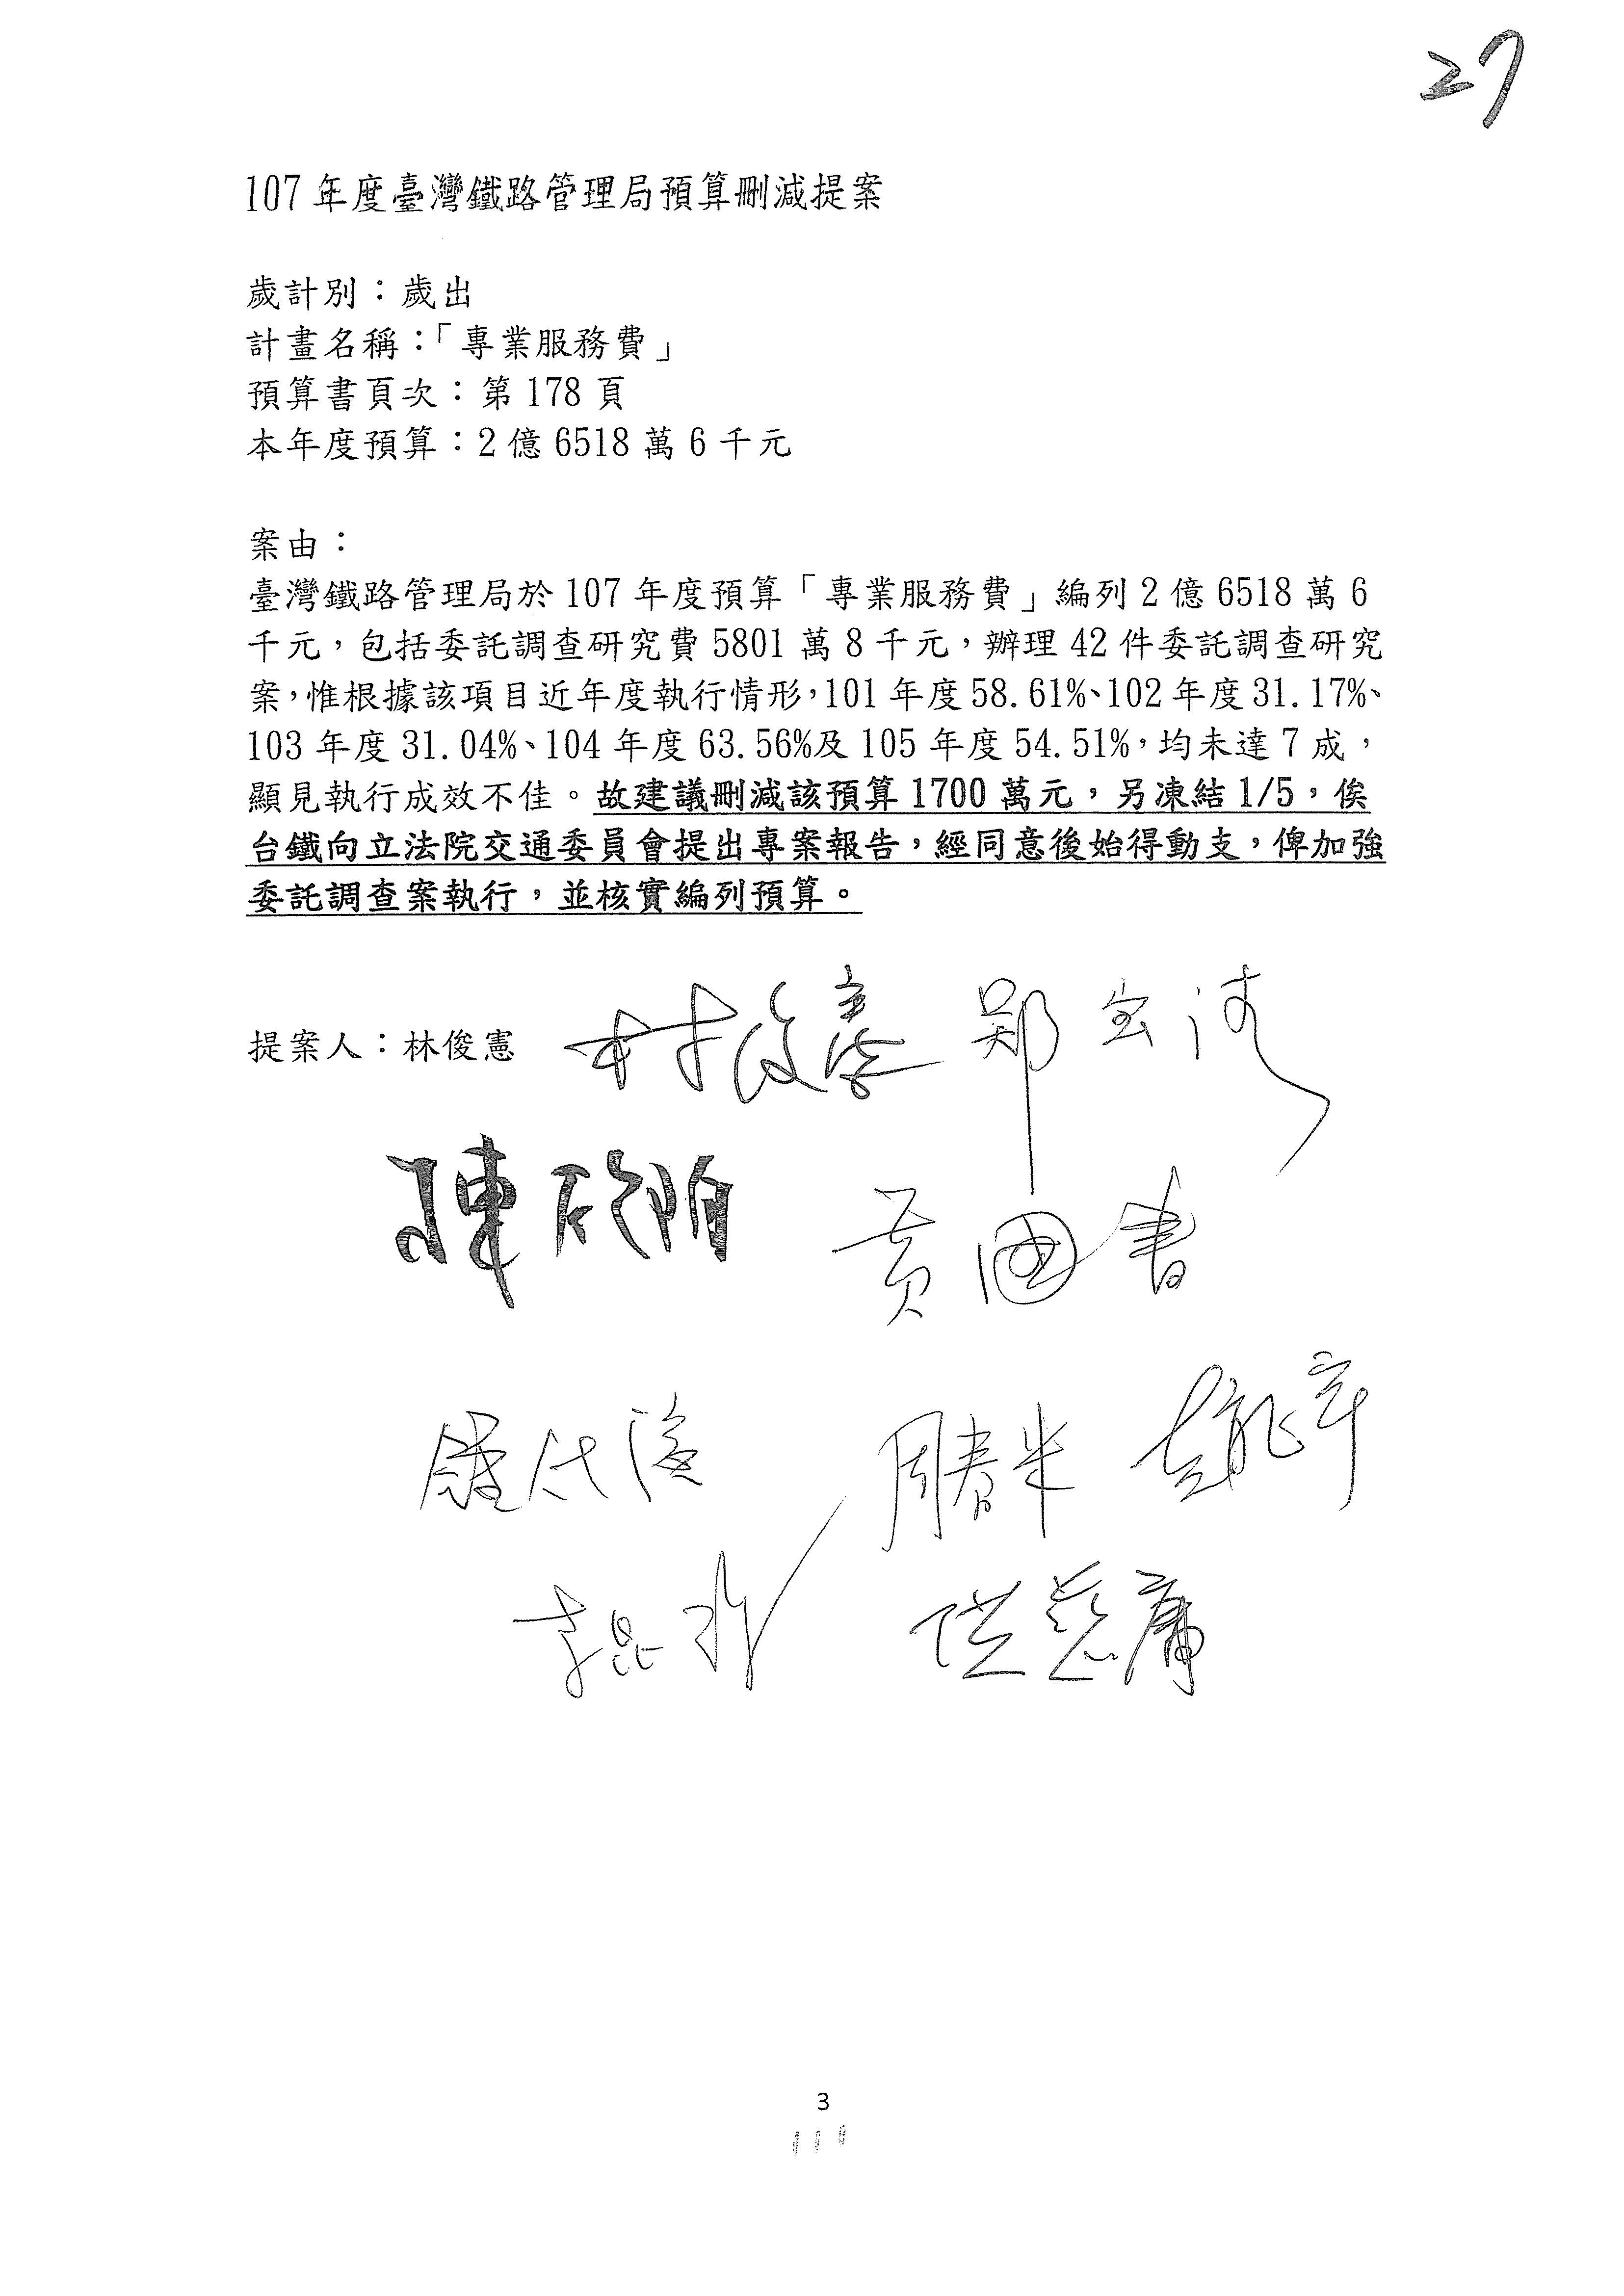 27
107 年度臺灣鐵路管理局預算刪減提案
歲計別：歲出
計畫名稱：「專業服務費」
預算書頁次：第 178 頁
本年度預算：2 億 6518 萬 6 千元
案由：
臺灣鐵路管理局於 107 年度預算「專業服務費」編列 2 億 6518 萬 6
千元，包括委託調查研究費 5801 萬 8 千元，辦理 42 件委託調查研究
案，惟根據該項目近年度執行情形，101 年度 58.61%、102 年度 31.17%、
103 年度 31.04%、104 年度 63.56%及 105 年度 54.51%，均未達 7 成，
顯見執行成效不佳。故建議刪減該預算 1700 萬元，另凍結 1/5，俟
台鐵向立法院交通委員會提出專案報告，經同意後始得動支，俾加強
委託調查案執行，並核實編列預算。
提案人：林俊憲 林俊憲 鄭宝清
黃國書
周春米
李昆澤 洪慈庸
3